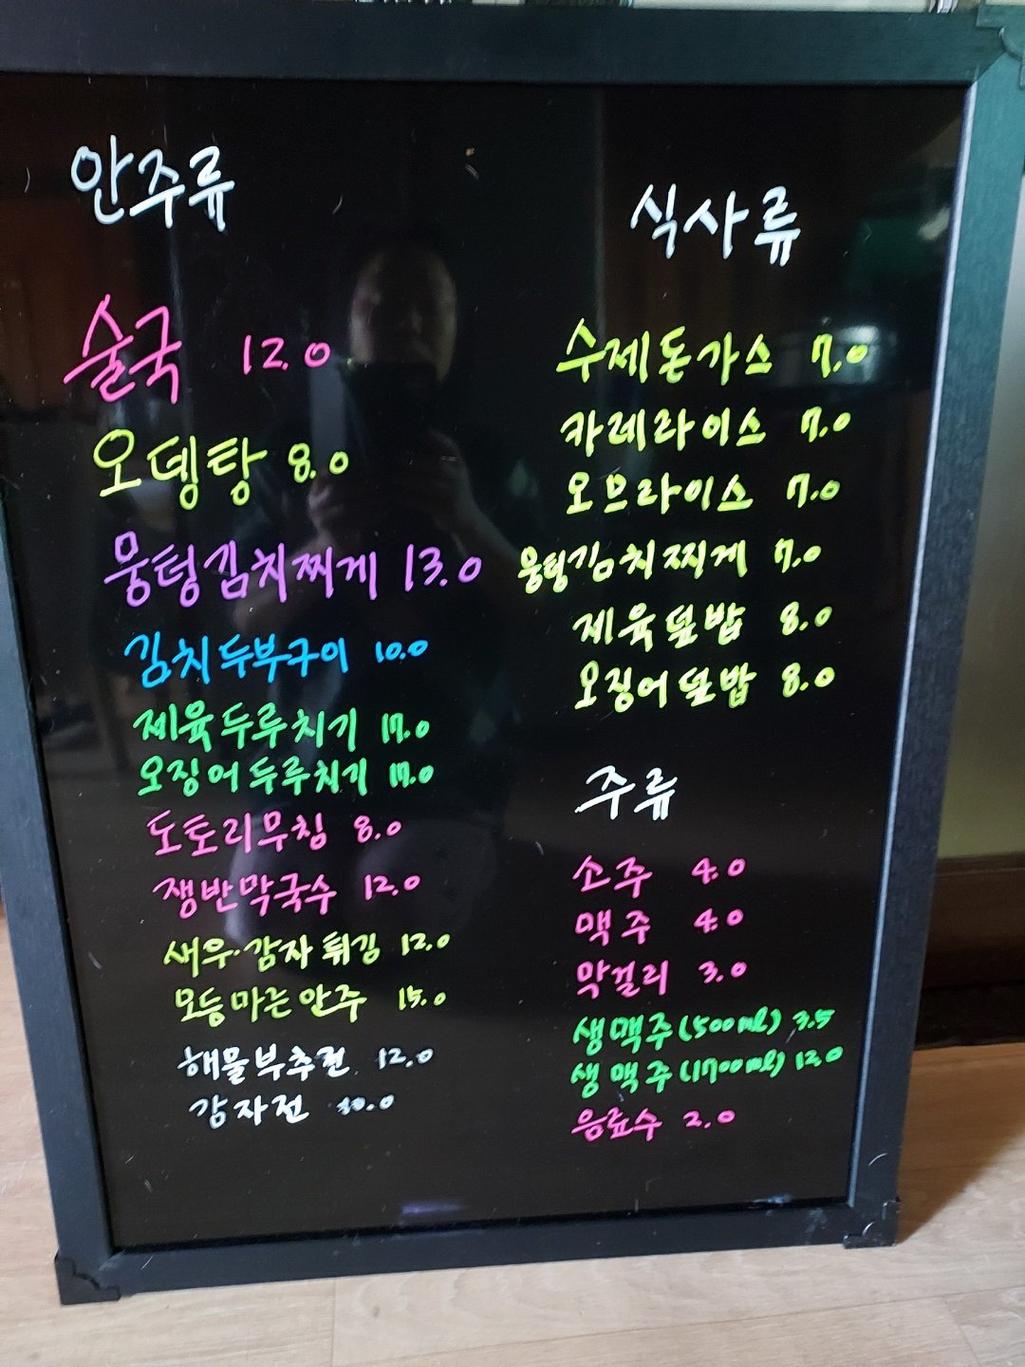 안주류
술국 12.0
오뎅탕 8.0
뭉텅김치찌게 13.0
김치두부구이 10.0
제육두루치기 17.0
오징어두루치기 17.0
도토리무침 8.0
쟁반막국수 12.0
새우·감자튀김 12.0
모듬마른안주 15.0
해물부추전 12.0
감자전 10.0
식사류
수제돈가스 7.0
카레라이스 7.0
오므라이스 7.0
뭉텅김치찌게 7.0
제육덮밥 8.0
오징어덮밥 8.0
주류
소주 4.0
맥주 4.0
막걸리 3.0
생맥주(500ml) 3.5
생맥주(1700ml) 12.0
음료수 2.0